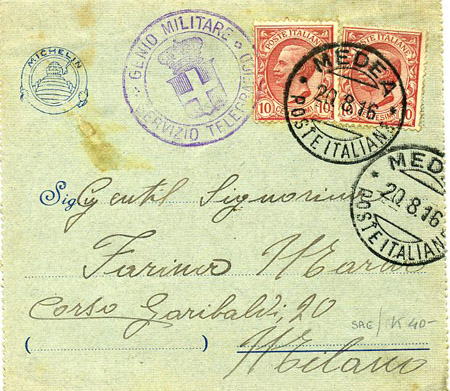 MICHELIN
GENIO MILITARE
SERVIZIO TELEGRAFICO
POSTE ITALIANE
10
POSTE ITALIANE
10
MEDEA
20.8.16
POSTE ITALIANE
MEDEA
20.8.16
POSTE ITALIANE
Sig Gentil Signorina
Farina Maria
Corso Garibaldi, 20
( )
Milano
SAG/K 40-